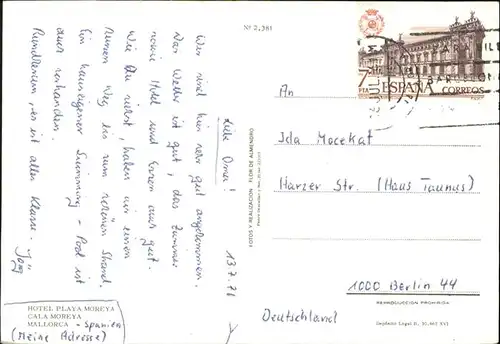 Nº 2.381
13.7.78
Liebe Oma!
Wir sind hier sehr gut angekommen.
Das Wetter ist gut, das Zimmer
sowie Hotel und Essen auch gut.
Wie Du siehst, haben wir einen
kurzen Weg bis zum schönen Strand.
Ein hauseigener Swimming-Pool ist
auch vorhanden.
Rundherum, es ist alles Klasse.
HOTEL PLAYA MOREYA
CALA MOREYA
MALLORCA - Spanien
(Meine Adresse)
FOTOS Y REALIZACION: FLOR DE ALMENDRO
7 PTA
ESPAÑA
CORREOS
BARCELONA
An
Ida Mocekat
Harzer Str. (Haus Taunus)
1000 Berlin 44
Deutschland
REPRODUCCION PROHIBIDA